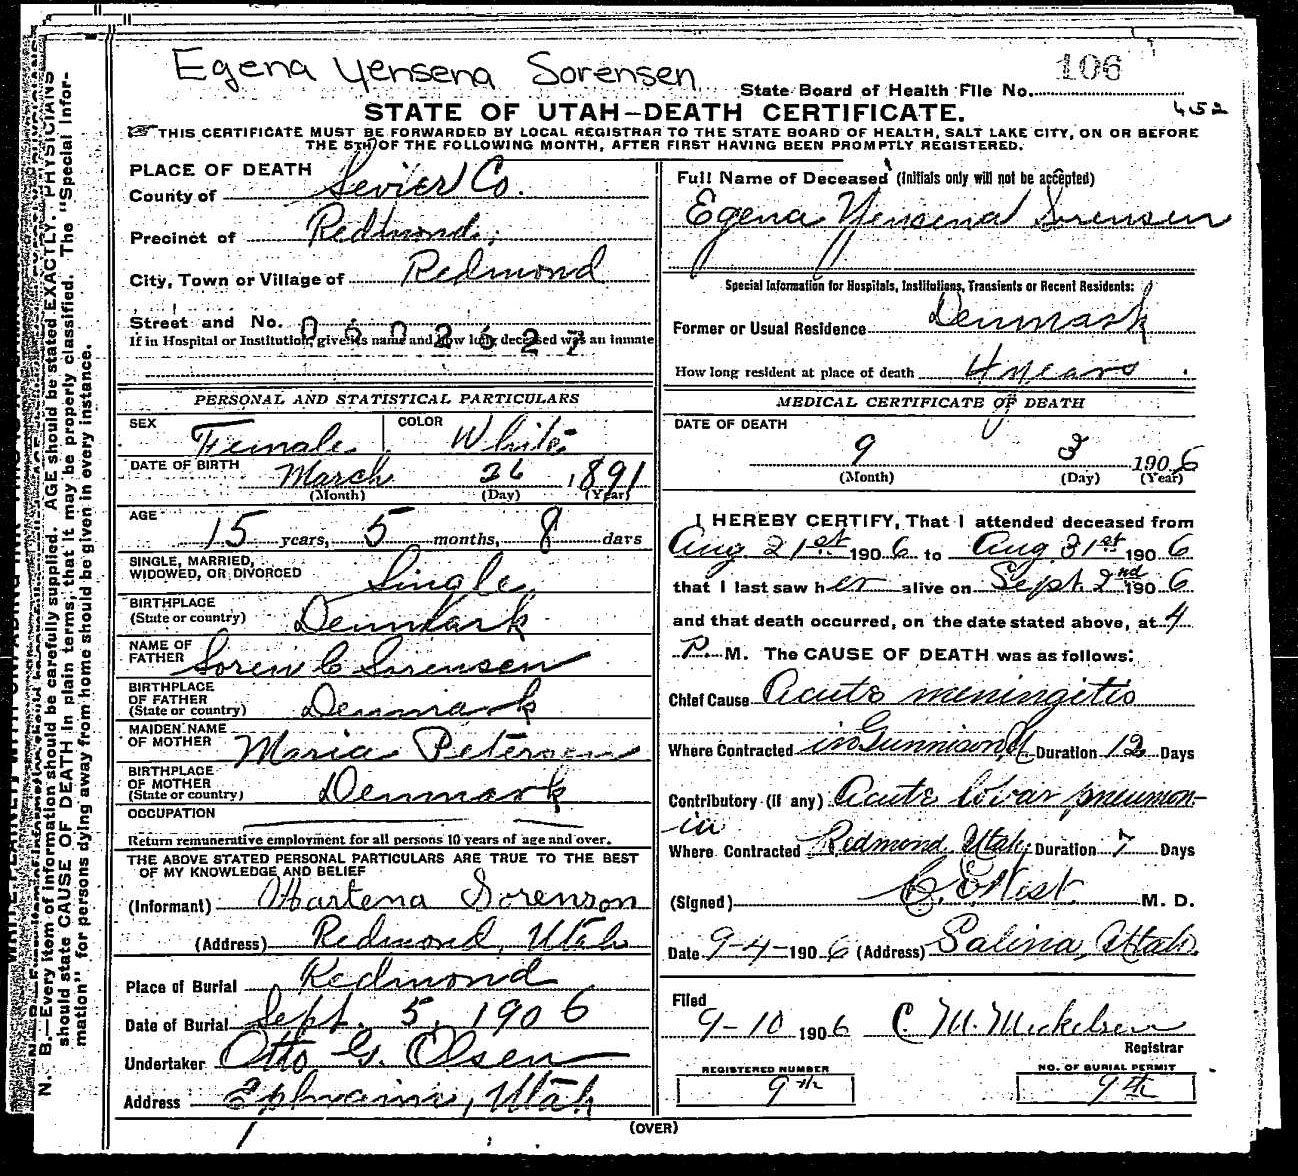 Egena Yensena Sorensen
106
State Board of Health File No.
452
STATE OF UTAH–DEATH CERTIFICATE.
THIS CERTIFICATE MUST BE FORWARDED BY LOCAL REGISTRAR TO THE STATE BOARD OF HEALTH, SALT LAKE CITY, ON OR BEFORE
THE 5TH OF THE FOLLOWING MONTH, AFTER FIRST HAVING BEEN PROMPTLY REGISTERED.
N. B.—Every item of information should be carefully supplied. AGE should be stated EXACTLY. PHYSICIANS
should state CAUSE OF DEATH in plain terms, that it may be properly classified. The "Special Infor-
mation" for persons dying away from home should be given in every instance.
PLACE OF DEATH
County of Sevier Co.
Precinct of Redmond
City, Town or Village of Redmond
Street and No.
0602627
If in Hospital or Institution, give its name and how long deceased was an inmate
PERSONAL AND STATISTICAL PARTICULARS
SEX Female COLOR White
DATE OF BIRTH March 26 1891
(Month) (Day) (Year)
AGE 15 years, 5 months, 8 days
SINGLE, MARRIED,
WIDOWED, OR DIVORCED Single
BIRTHPLACE
(State or country) Denmark
NAME OF
FATHER Soren C Sorensen
BIRTHPLACE
OF FATHER
(State or country) Denmark
MAIDEN NAME
OF MOTHER Maria Petersen
BIRTHPLACE
OF MOTHER
(State or country) Denmark
OCCUPATION
Return remunerative employment for all persons 10 years of age and over.
THE ABOVE STATED PERSONAL PARTICULARS ARE TRUE TO THE BEST
OF MY KNOWLEDGE AND BELIEF
(Informant) Hartena Sorenson
(Address) Redmond, Utah
Place of Burial Redmond
Date of Burial Sept. 5, 1906
Undertaker Otto G. Olsen
Address Ephraim, Utah
Full Name of Deceased (Initials only will not be accepted)
Egena Yensena Sorensen
Special Information for Hospitals, Institutions, Transients or Recent Residents:
Former or Usual Residence Denmark
How long resident at place of death 4 years
MEDICAL CERTIFICATE OF DEATH
DATE OF DEATH
9 3 1906
(Month) (Day) (Year)
I HEREBY CERTIFY, That I attended deceased from
Aug 21st 1906 to Aug 31st 1906
that I last saw her alive on Sept. 2nd 1906
and that death occurred, on the date stated above, at 4
P. M. The CAUSE OF DEATH was as follows:
Chief Cause Acute meningitis
Where Contracted in Gunnison, U Duration 12 Days
Contributory (if any) Acute lobar pneumon-
ia
Where Contracted Redmond Utah Duration 7 Days
(Signed) C. E. West M. D.
Date 9-4-1906 (Address) Salina, Utah
Filed
9-10 1906 C. M. Mickelsen
Registrar
REGISTERED NUMBER
9th
NO. OF BURIAL PERMIT
9th
(OVER)